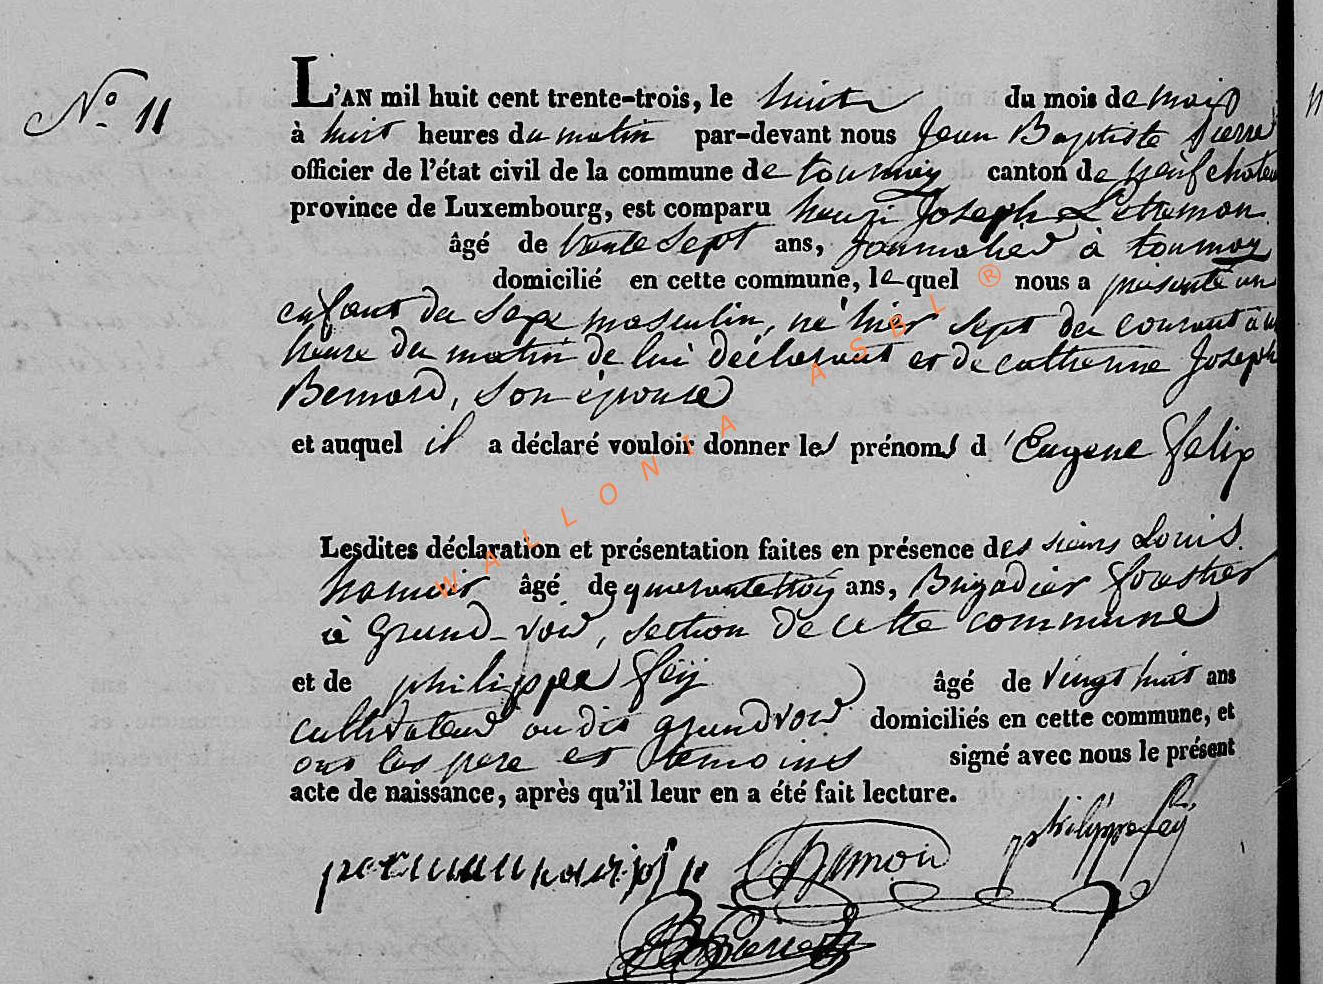 N.º 11
L'AN mil huit cent trente-trois, le huit du mois de mai
à huit heures du matin par-devant nous Jean Baptiste Pierre
officier de l'état civil de la commune de tournay canton de neufchateau
province de Luxembourg, est comparu henri Joseph
âgé de trente sept ans, Journalier à tournay
domicilié en cette commune, lequel nous a présenté un
enfant du sexe masculin, né hier sept du courant à une
heure du matin de lui déclarant et de catherine Joseph
Bernard, son épouse
et auquel il a déclaré vouloir donner les prénoms d'Eugene felix
Lesdites déclaration et présentation faites en présence des sieurs Louis
hamoir âgé de quarante trois ans, Brigadier forestier
à Grand-voir, section de cette commune
et de philippe feÿ âgé de vingt huit ans
cultivateur au dit grandvoir domiciliés en cette commune, et
ont les pere et temoins signé avec nous le présent
acte de naissance, après qu'il leur en a été fait lecture.
philippe feÿ
JB Pierre
WALLONIA ASBL ®